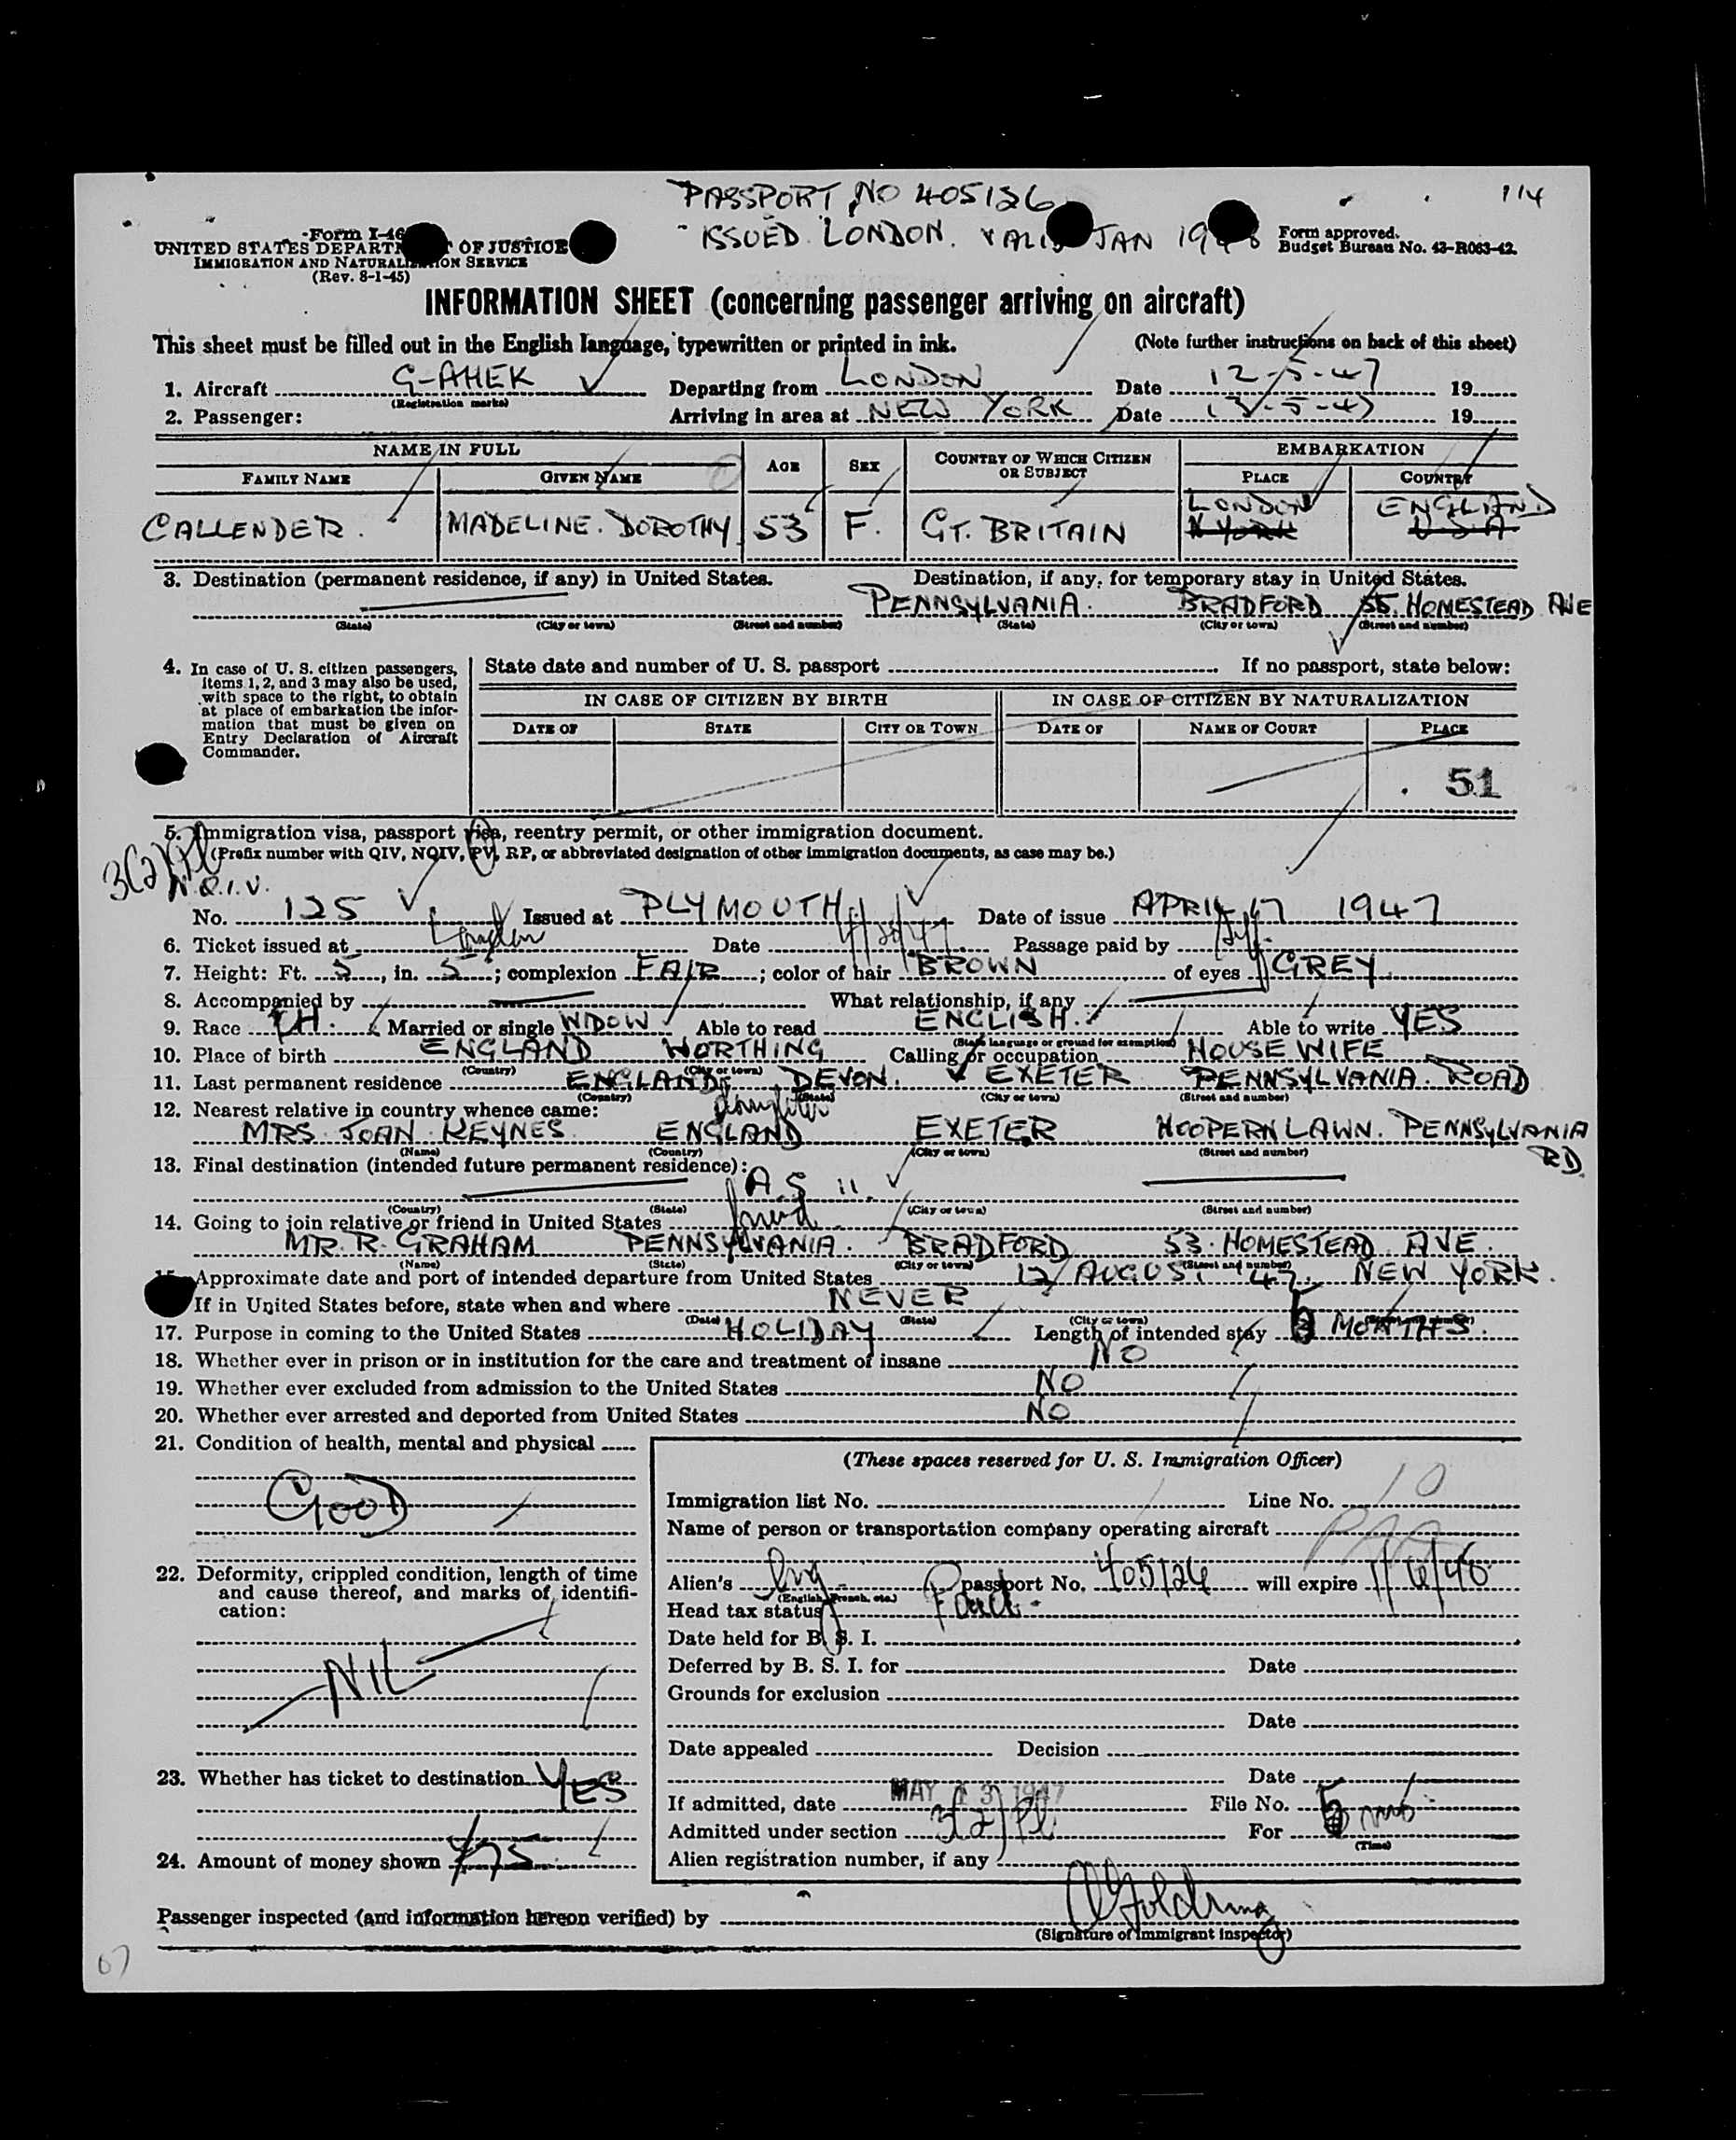 114
PASSPORT NO 405126
ISSUED LONDON. VALID JAN 1948
Form I-46
UNITED STATES DEPARTMENT OF JUSTICE
IMMIGRATION AND NATURALIZATION SERVICE
(Rev. 8-1-45)
Form approved.
Budget Bureau No. 43-R063-42.
INFORMATION SHEET (concerning passenger arriving on aircraft)
This sheet must be filled out in the English language, typewritten or printed in ink. (Note further instructions on back of this sheet)
1. Aircraft G-AHEK Departing from LONDON Date 12-5-47 19
(Registration marks)
2. Passenger: Arriving in area at NEW YORK Date 13-5-47 19
NAME IN FULL AGE SEX COUNTRY OF WHICH CITIZEN OR SUBJECT EMBARKATION
FAMILY NAME GIVEN NAME PLACE COUNTRY
LONDON ENGLAND
CALLENDER. MADELINE. DOROTHY 53 F. GT. BRITAIN N YORK U S A
3. Destination (permanent residence, if any) in United States. Destination, if any, for temporary stay in United States.
PENNSYLVANIA. BRADFORD 55. HOMESTEAD AVE
(State) (City or town) (Street and number) (State) (City or town) (Street and number)
4. In case of U. S. citizen passengers, items 1, 2, and 3 may also be used, with space to the right, to obtain at place of embarkation the information that must be given on Entry Declaration of Aircraft Commander.
State date and number of U. S. passport If no passport, state below:
IN CASE OF CITIZEN BY BIRTH IN CASE OF CITIZEN BY NATURALIZATION
DATE OF STATE CITY OR TOWN DATE OF NAME OF COURT PLACE
51
5. Immigration visa, passport visa, reentry permit, or other immigration document.
(Prefix number with QIV, NQIV, PV, RP, or abbreviated designation of other immigration documents, as case may be.)
3(2)
N.Q.I.V.
No. 125 Issued at PLYMOUTH Date of issue APRIL 17 1947
6. Ticket issued at London Date 4/28/47 Passage paid by
7. Height: Ft. 5, in. 5; complexion FAIR; color of hair BROWN of eyes GREY
8. Accompanied by What relationship, if any
9. Race Married or single WIDOW Able to read ENGLISH. Able to write YES
(State language or ground for exemption)
10. Place of birth ENGLAND WORTHING Calling or occupation HOUSEWIFE
(Country) (City or town)
11. Last permanent residence ENGLAND DEVON. EXETER PENNSYLVANIA. ROAD
(Country) (State) (City or town) (Street and number)
12. Nearest relative in country whence came: daughter
MRS. JOAN KEYNES ENGLAND EXETER HOOPERN LAWN. PENNSYLVANIA RD
(Name) (Country) (City or town) (Street and number)
13. Final destination (intended future permanent residence):
A.S 11.
(Country) (State) (City or town) (Street and number)
14. Going to join relative or friend in United States friend
MR. R. GRAHAM PENNSYLVANIA. BRADFORD 53. HOMESTEAD AVE.
(Name) (State) (City or town) (Street and number)
15. Approximate date and port of intended departure from United States 12 AUGUST 47. NEW YORK.
If in United States before, state when and where NEVER
(Date) (State) (City or town)
17. Purpose in coming to the United States HOLIDAY Length of intended stay 5 MONTHS.
18. Whether ever in prison or in institution for the care and treatment of insane NO
19. Whether ever excluded from admission to the United States NO
20. Whether ever arrested and deported from United States NO
21. Condition of health, mental and physical
GOOD
22. Deformity, crippled condition, length of time and cause thereof, and marks of identification:
NIL
23. Whether has ticket to destination YES
24. Amount of money shown $75
(These spaces reserved for U. S. Immigration Officer)
Immigration list No. Line No. 10
Name of person or transportation company operating aircraft
PAA
Alien's Eng passport No. 405126 will expire 1/6/48
(English, French, etc.)
Head tax status Paid
Date held for B. S. I.
Deferred by B. S. I. for Date
Grounds for exclusion
Date
Date appealed Decision
Date
If admitted, date MAY 13 1947 File No.
Admitted under section 3(2) For 5 mos
(Time)
Alien registration number, if any
Passenger inspected (and information hereon verified) by
(Signature of immigrant inspector)
67